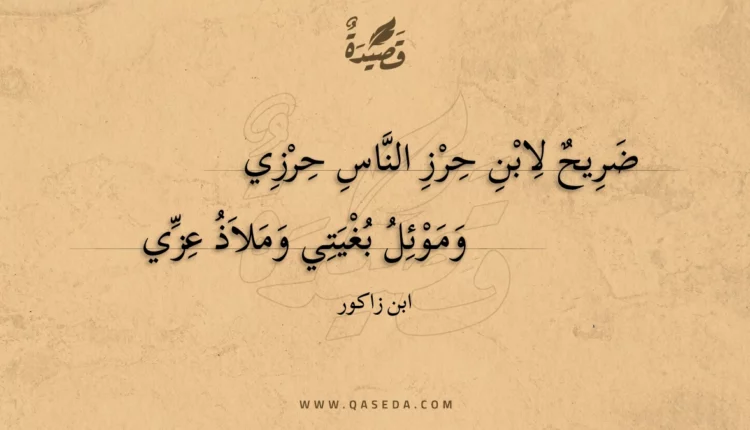 قَصِيْدَةٌ
ضَرِيحٌ لِابْنِ حِرْزِ النَّاسِ حِرْزِي
وَمَوْئِلُ بُغْيَتِي وَمَلاَذُ عِزِّي
ابن زاكور
WWW.QASEDA.COM